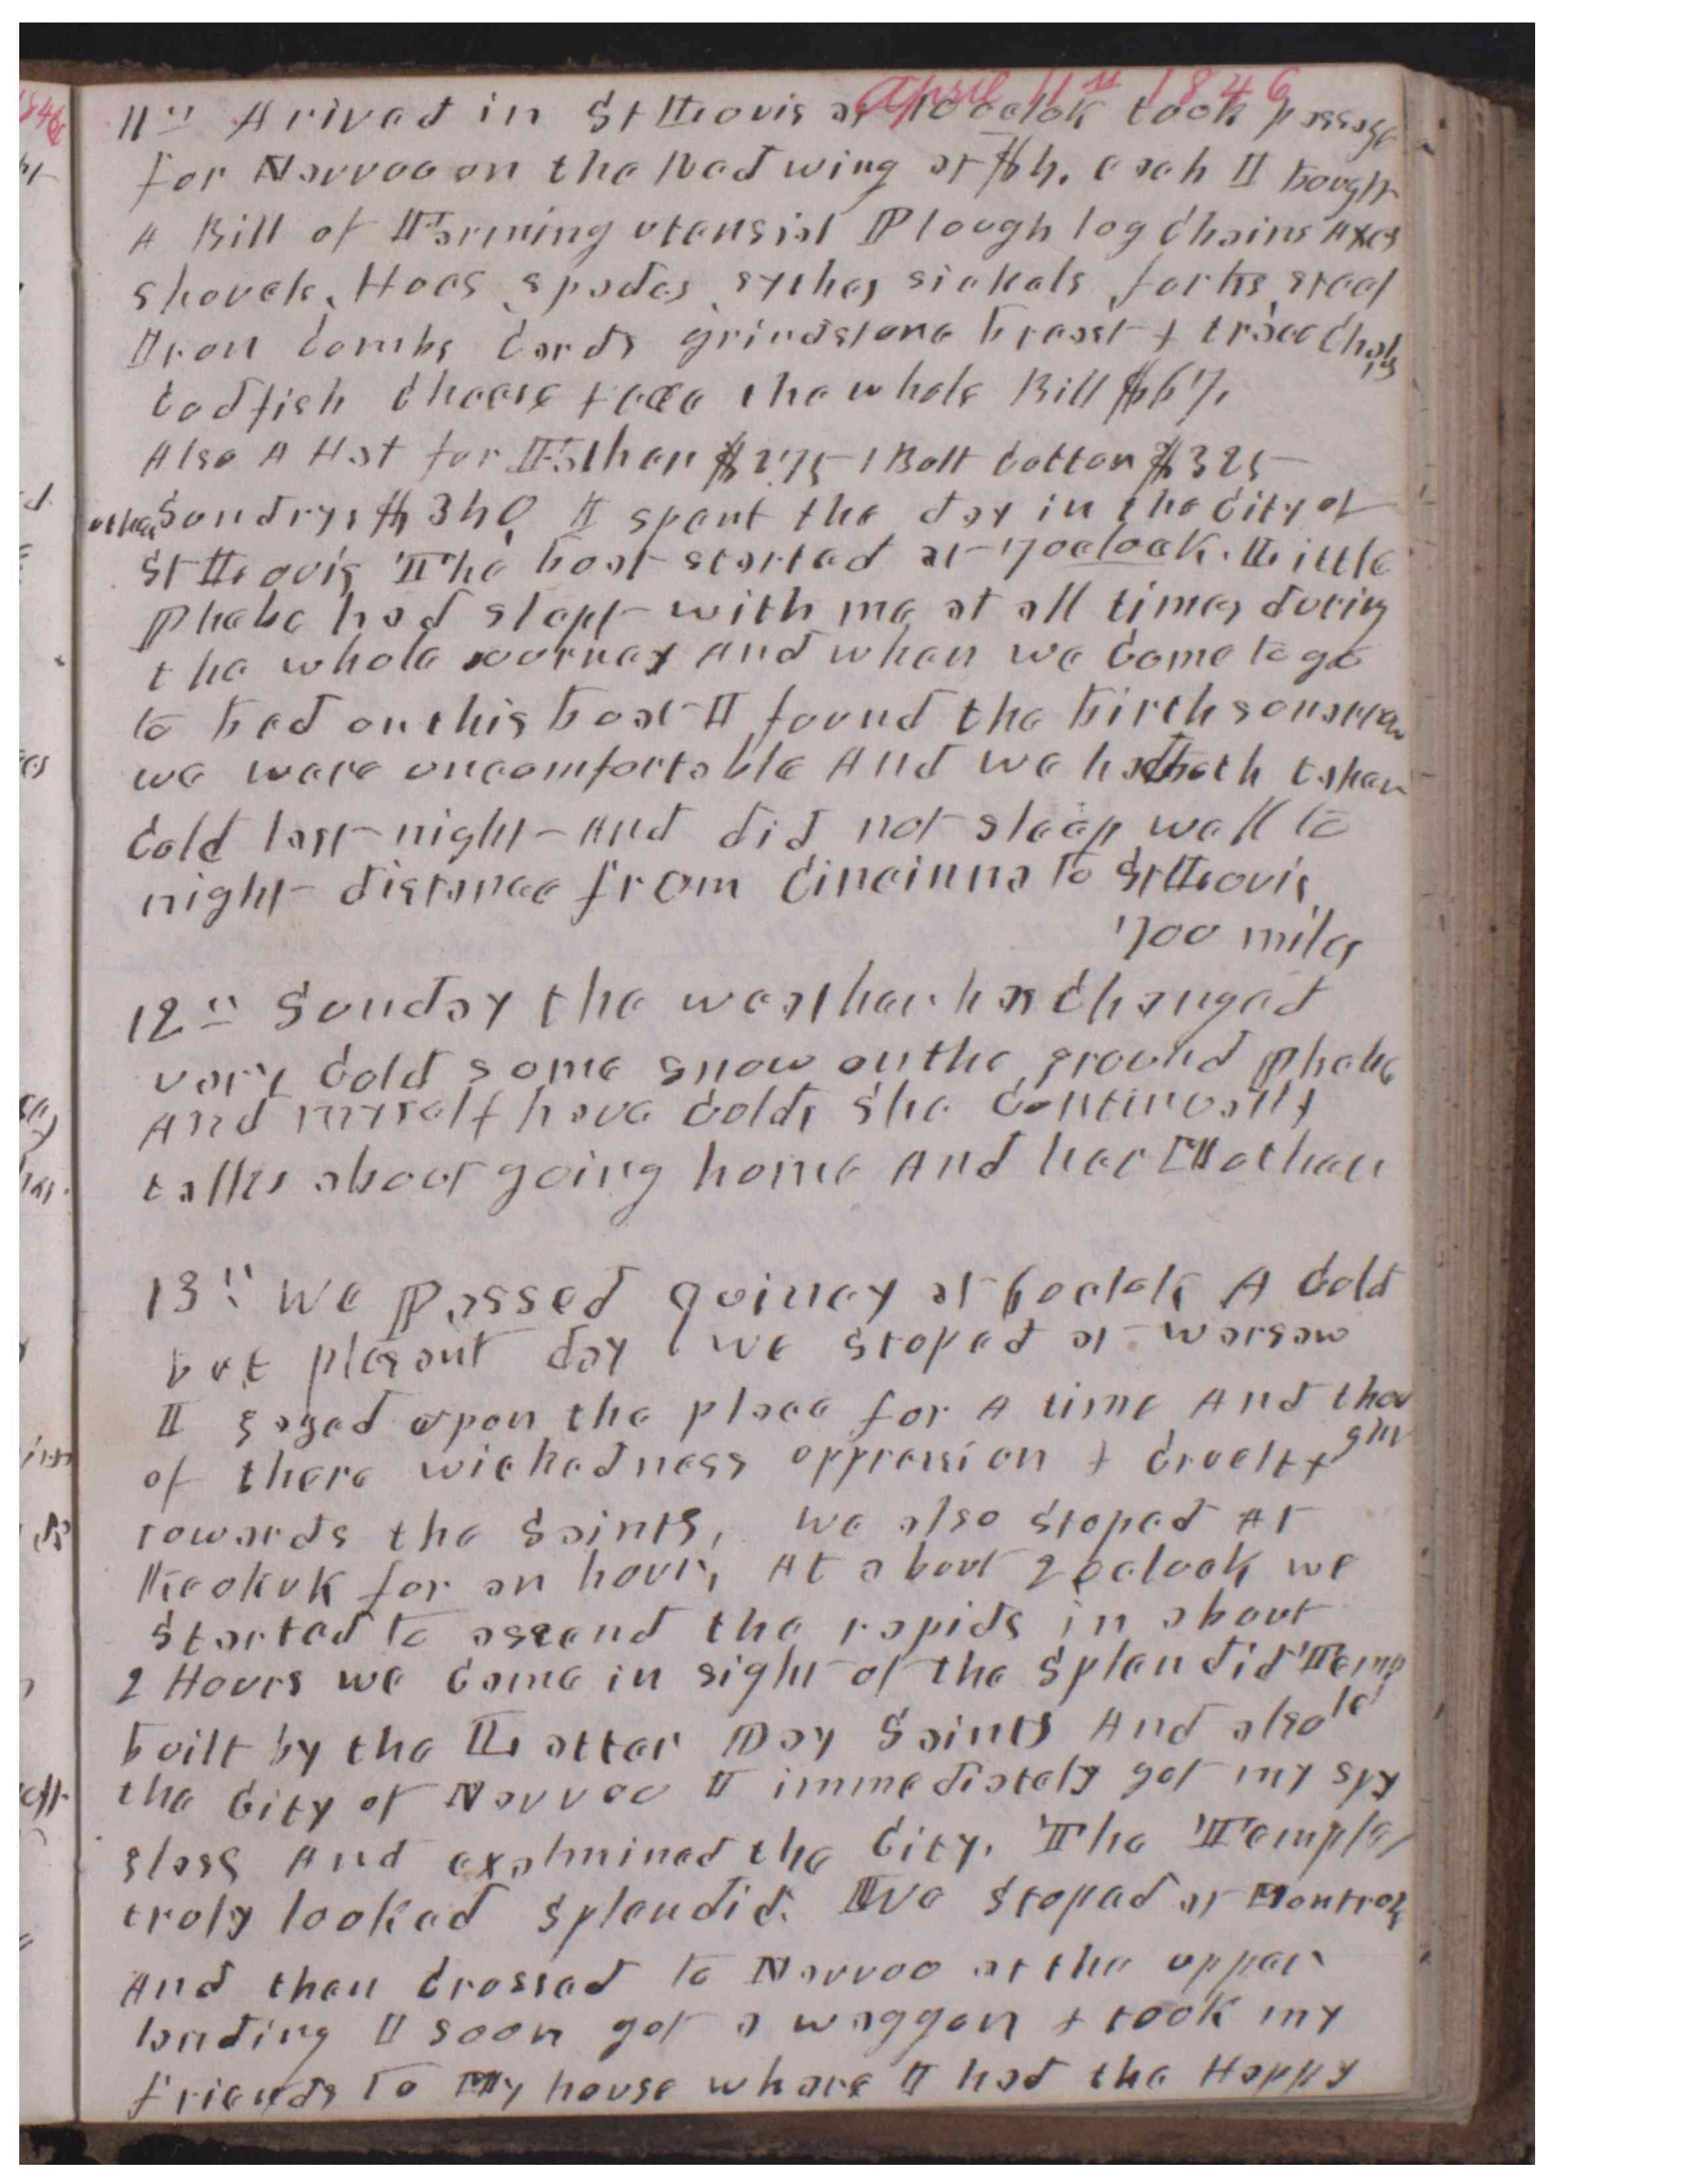 April 11th 1846
11" Arived in St Louis at 10 oclok took passage
for Nauvoo on the Red wing at $4. each I bought
A Bill of Farming utensial Plough log Chains Axes
shovels, Hoes spades sythes sickals, forks, steel
Iron Combs Cards grindstone breast + trace Chains
Codfish Cheese + ccc the whole Bill $67,
Also A Hat for Esther $2.75 1 Bolt Cotton $325
other Sundrys $340, I spent the day in the City of
St Louis The boat started at 7 oclock. Little
Phebe had slept with me at all times during
the whole journey And when we Came to go
to bed on this boat I found the birth so narrow
we were uncomfortable And we had both taken
Cold last night And did not sleep well to
night distance from Cincinna to St Louis
700 miles
12" Sunday the weather has Changed
very Cold some snow on the ground Phebe
And myself have Colds She Continually
talks about going home And her Mother
13" We Passed quincy at 6 oclok A Cold
but plesant day we stoped at Warsaw
I gazed upon the place for A time And thou
ght
of there wickedness oppression + Cruelty
towards the Saints, we also stoped At
Keokuk for an hour, At about 2 oclock we
Started to assend the rapids in about
2 Hours we Came in sight of the Splendid Temp
le
built by the Latter Day Saints And also
the City of Nauvoo I immediately got my spy
glass And exahmined the City. The Temple
truly looked splendid. We stoped at Montrose
And then Crossed to Nauvoo at the upper
landing I soon got a waggon + took my
friends to My house whare I had the Happy